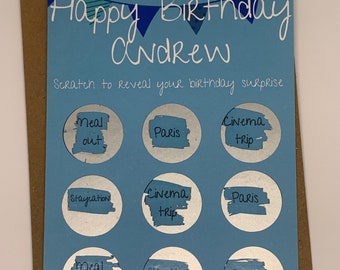 Happy Birthday
Andrew
Scratch to reveal your birthday surprise
Meal out
Paris
Cinema trip
Staycation
Cinema trip
Paris
Meal